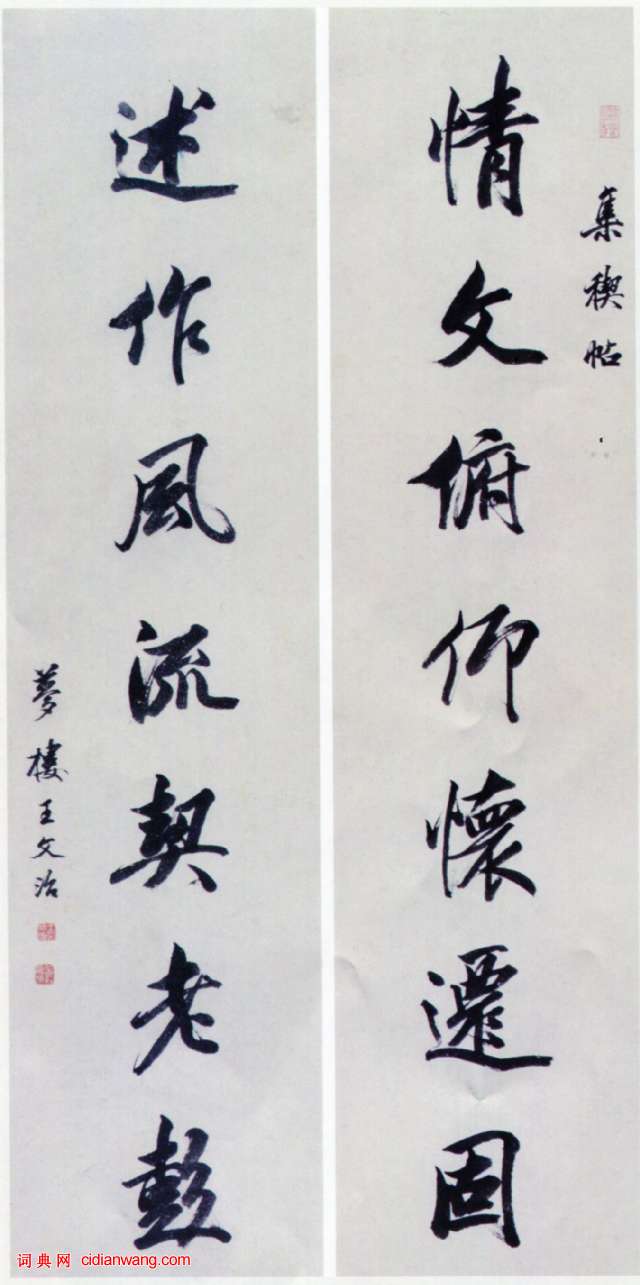 集稧帖
情文俯仰懷遷固
述作風流契老彭
夢樓王文治
词典网 cidianwang.com